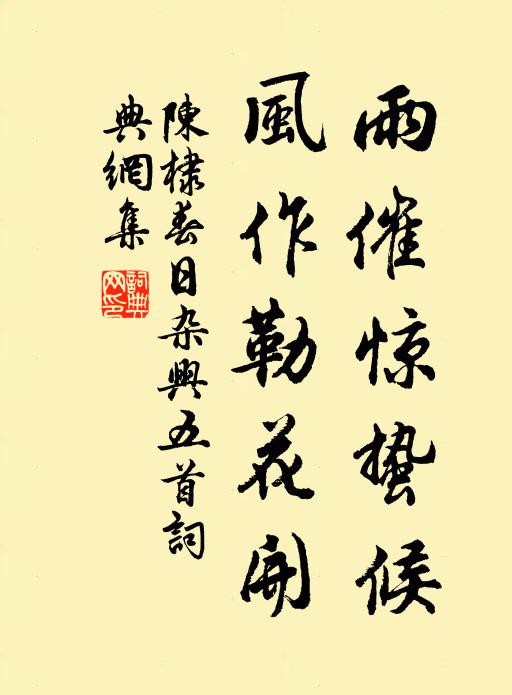 雨催惊蛰候
風作勒花開
陳棣春日杂興五首詞
典網集
詞典
网印